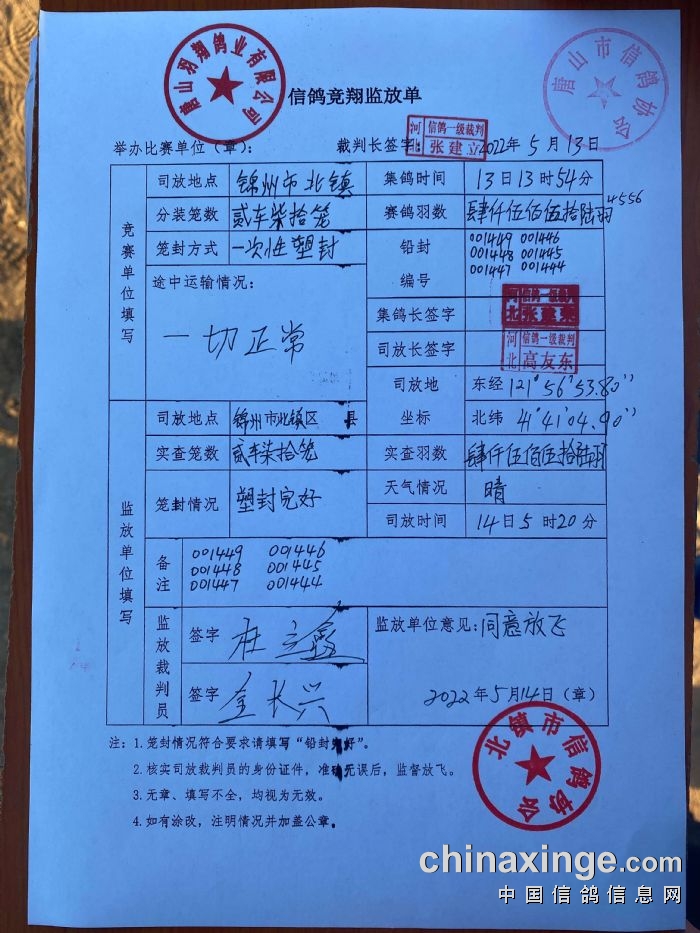 唐山羽翔鸽业有限公司
唐山市信鸽协会
信鸽竞翔监放单
河 信鸽一级裁判 张建立
举办比赛单位(章): 裁判长签字: 2022年5月13日
竞赛单位填写
司放地点 锦州市北镇 集鸽时间 13日13时54分
分装笼数 贰车柒拾笼 赛鸽羽数 肆仟伍佰伍拾陆羽 4556
笼封方式 一次性塑封 铅封编号 001449 001446
001448 001445
001447 001444
途中运输情况:
一切正常
集鸽长签字 河北 信鸽一级裁判
司放长签字 河北 信鸽一级裁判 高友东
司放地坐标 东经 121°56'53.80''
北纬 41°41'04.90''
监放单位填写
司放地点 锦州市北镇区 县
实查笼数 贰车柒拾笼 实查羽数 肆仟伍佰伍拾陆羽
笼封情况 塑封完好 天气情况 晴
司放时间 14日5时20分
备注 001449 001446
001448 001445
001447 001444
监放裁判员 签字
签字 金长兴
监放单位意见: 同意放飞
2022年5月14日(章)
北镇市信鸽协会
注: 1.笼封情况符合要求请填写“铅封完好”。
2.核实司放裁判员的身份证件,准确无误后,监督放飞。
3.无章、填写不全,均视为无效。
4.如有涂改,注明情况并加盖公章。
chinaxinge.com
中国信鸽信息网